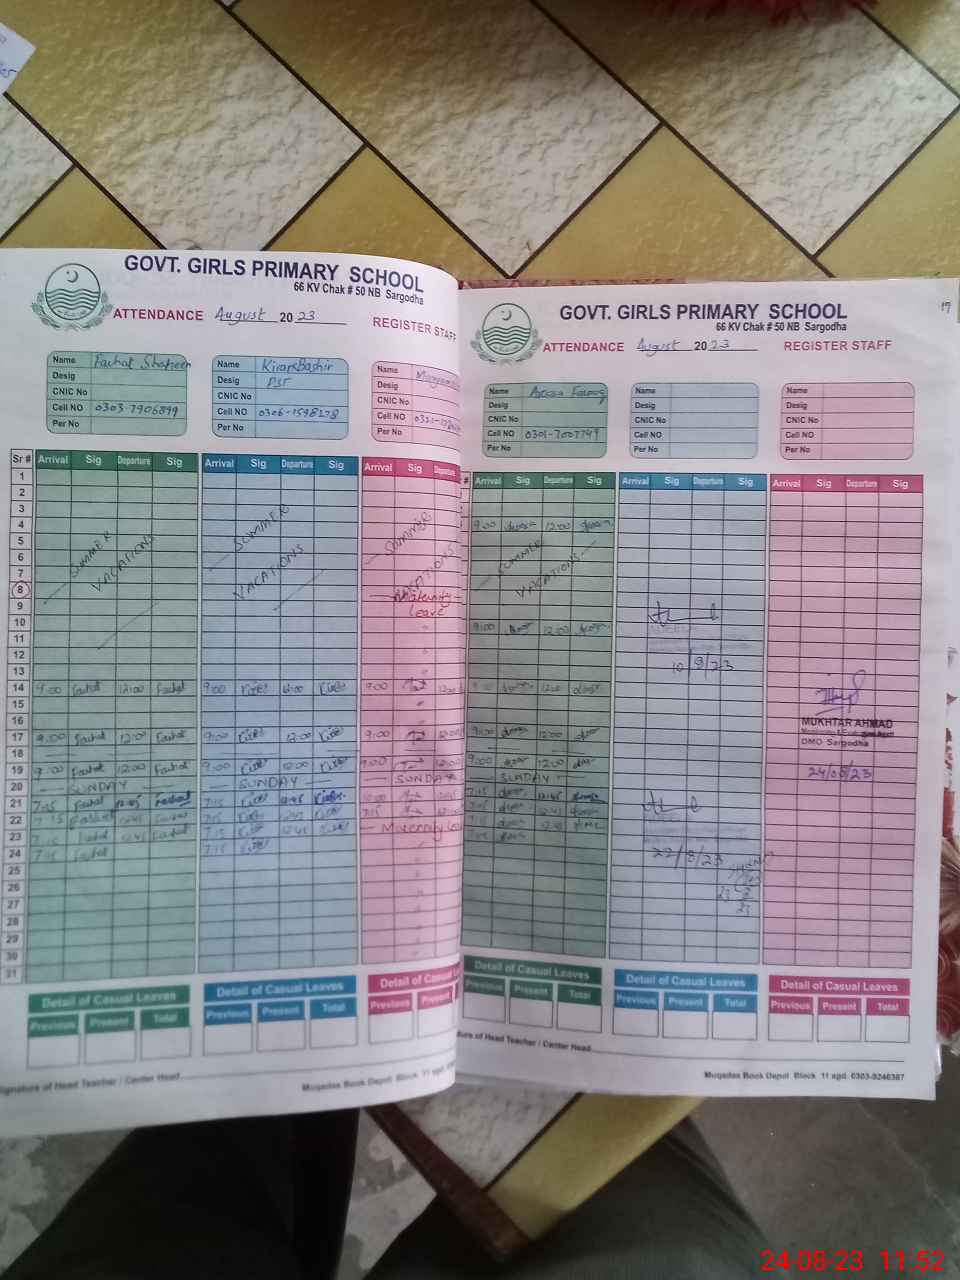 GOVT. GIRLS PRIMARY SCHOOL
66 KV Chak # 50 NB Sargodha
ATTENDANCE August 2023
REGISTER STAFF
Name Farhat Shaheen
Desig
CNIC No
Cell NO 0303-7906899
Per No
Name Kiran Bashir
Desig PST
CNIC No
Cell NO 0306-1598278
Per No
Name
Desig
CNIC No
Cell NO
Per No
Sr # Arrival Sig Departure Sig Arrival Sig Departure Sig Arrival Sig Departure
1
2
3
4
5
6
7
8
9
10
11
12
13
14 9:00 Farhat 12:00 Farhat 9:00 12:00 9:00
15
16
17 9:00 Farhat 12:00 Farhat 9:00 12:00 9:00
18
19 9:00 Farhat 12:00 Farhat 9:00 12:00 9:00
20 SUNDAY SUNDAY SUNDAY
21 7:15 Farhat 12:45 Farhat 7:15 12:45
22 7:15 Farhat 12:45 Farhat 7:15 12:45
23 7:15 Farhat 12:45 Farhat 7:15 12:45
24 7:15 Farhat 7:15
25
26
27
28
29
30
31
SUMMER VACATIONS
SUMMER VACATIONS
SUMMER VACATIONS
Maternity leave
Maternity
Detail of Casual Leaves
Previous Present Total
Detail of Casual Leaves
Previous Present Total
Detail of Casual
Previous Present
Signature of Head Teacher / Center Head
Muqadas Book Depot Block 11 sgd.
17
GOVT. GIRLS PRIMARY SCHOOL
66 KV Chak # 50 NB Sargodha
ATTENDANCE August 2023 REGISTER STAFF
Name
Desig
CNIC No
Cell NO 0301-7007749
Per No
Name
Desig
CNIC No
Cell NO
Per No
Name
Desig
CNIC No
Cell NO
Per No
Arrival Sig Departure Sig Arrival Sig Departure Sig Arrival Sig Departure Sig
9:00 12:00
SUMMER
VACATIONS
9:00 12:00
10/8/23
9:00 12:00
9:00 12:00
MUKHTAR AHMAD
DMO Sargodha
24/08/23
9:00 12:00
SUNDAY
7:15 12:45
7:15 12:45
7:15 12:45
22/8/23
Detail of Casual Leaves
Previous Present Total
Detail of Casual Leaves
Previous Present Total
Detail of Casual Leaves
Previous Present Total
Head Teacher / Center Head
Muqadas Book Depot Block 11 sgd. 0303-9246387
24-08-23 11:52